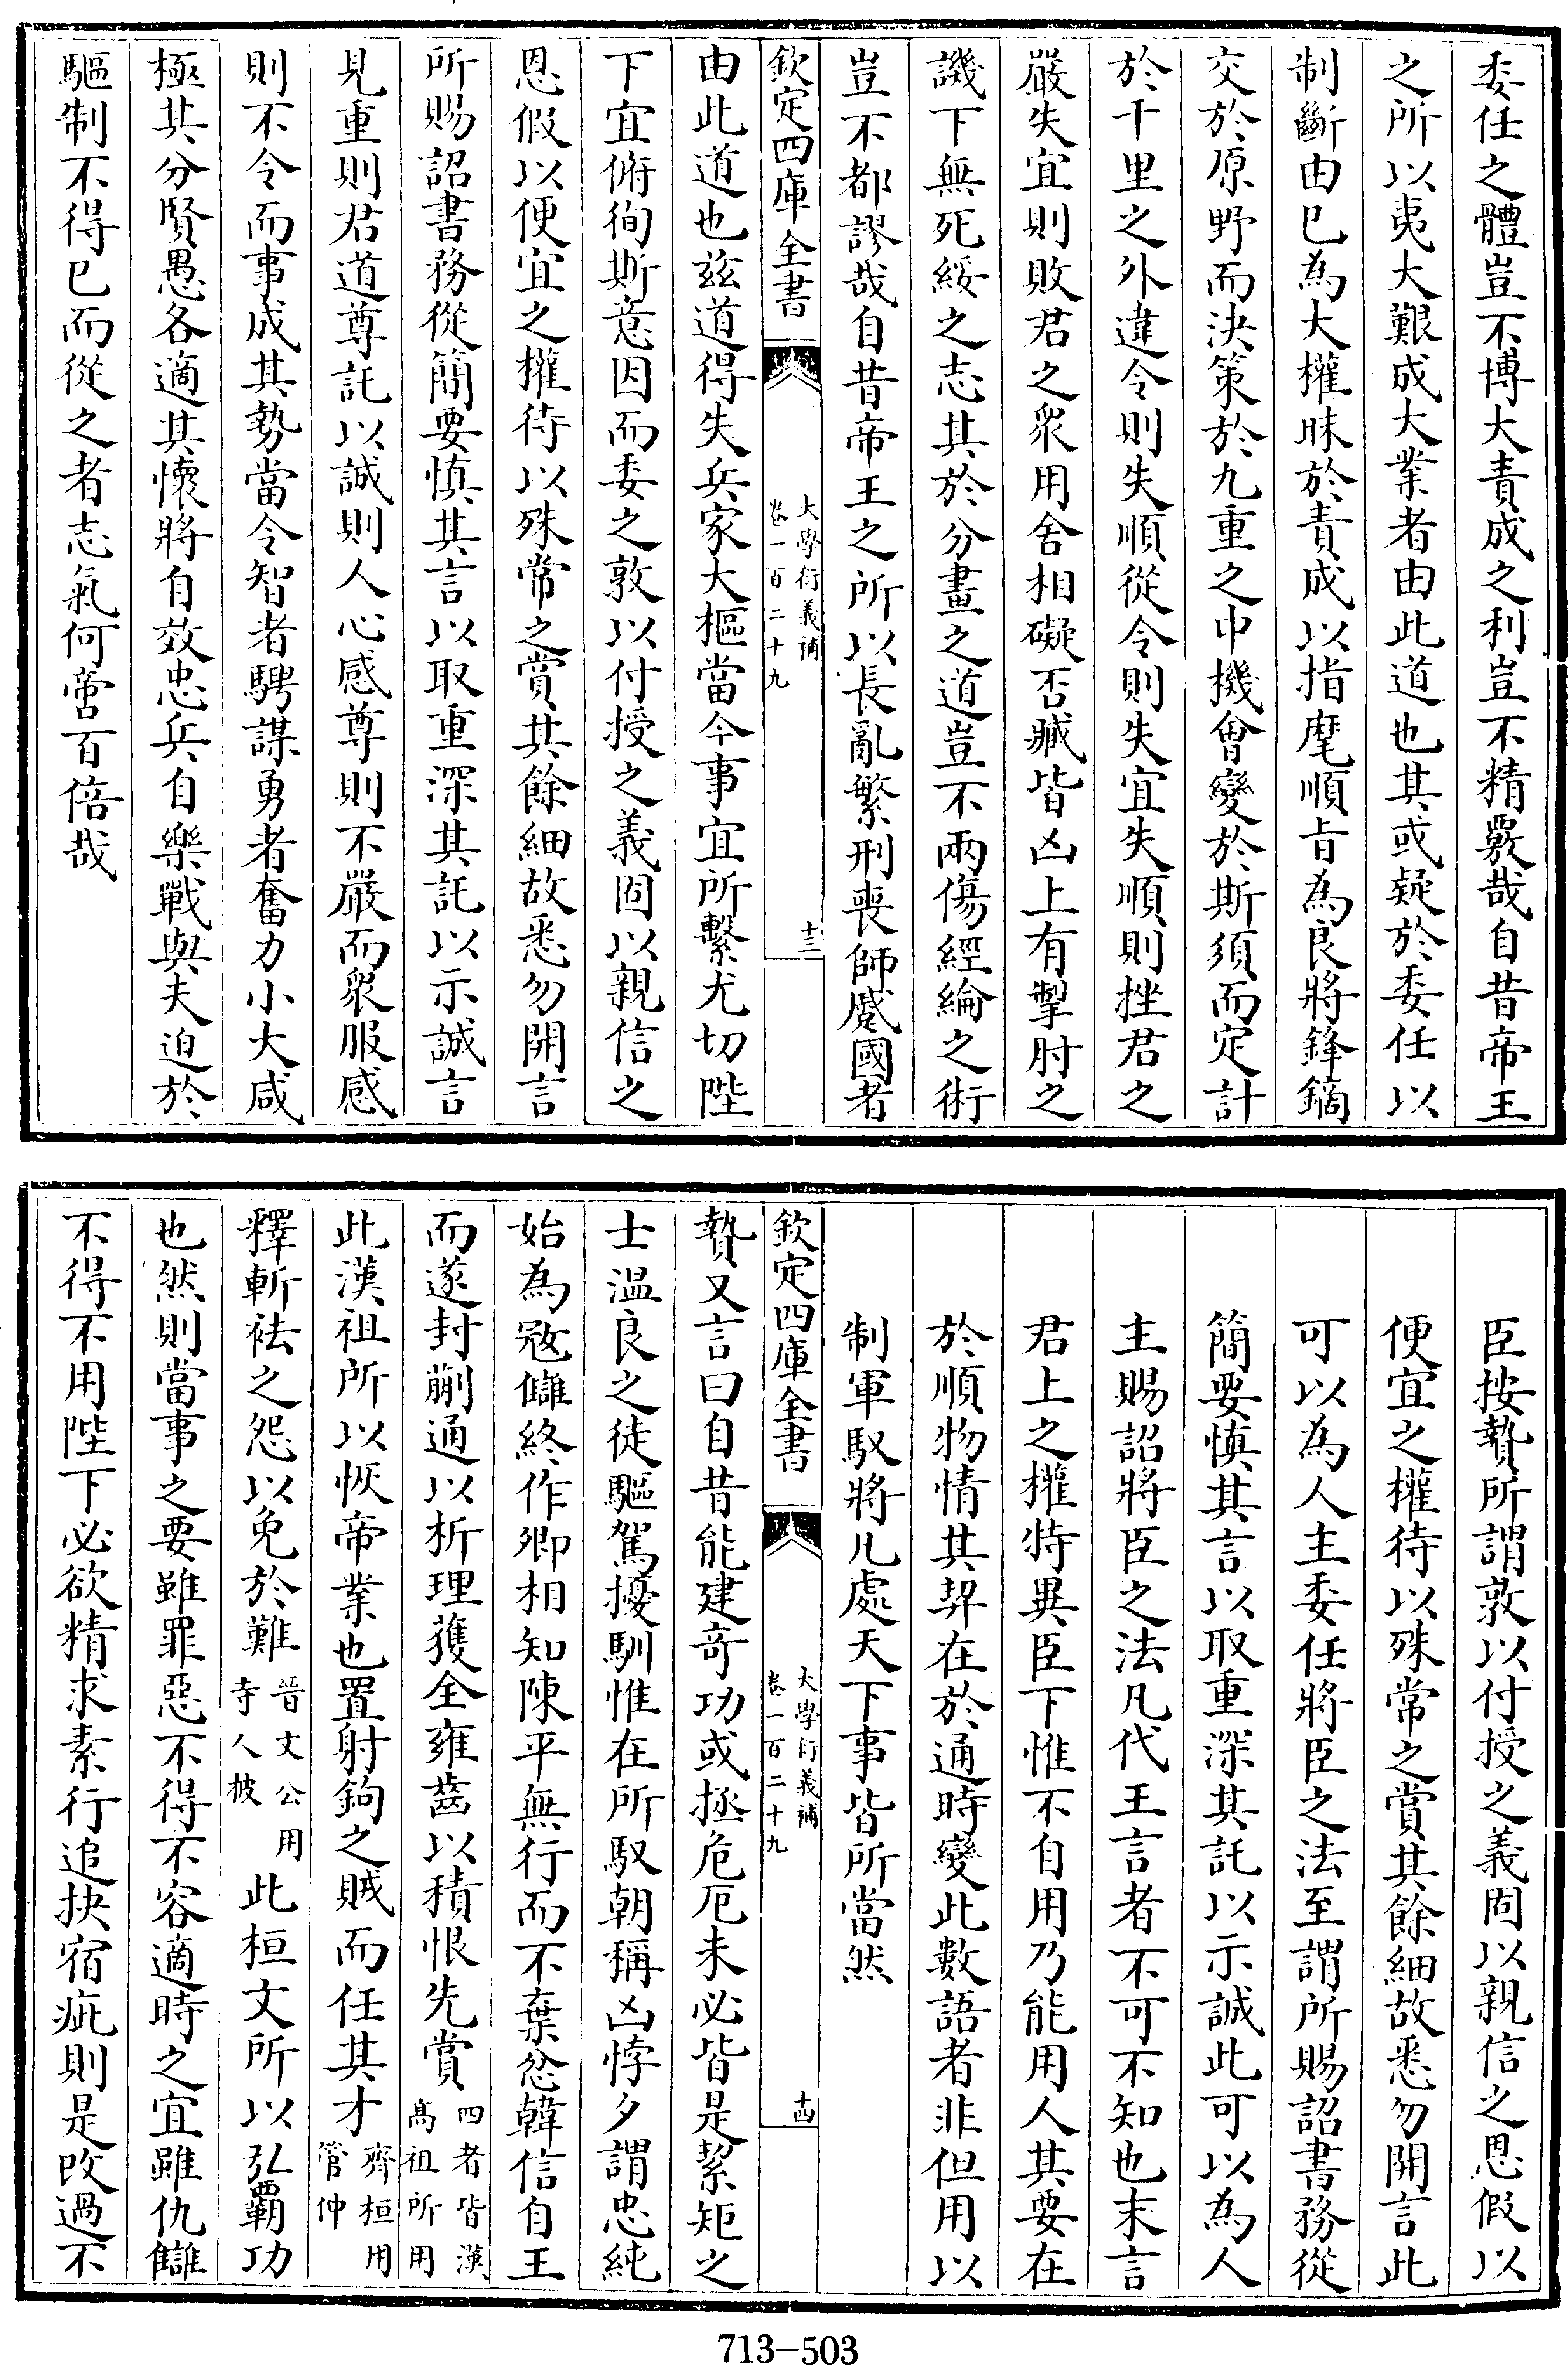 委任之體豈不博大責成之利豈不精覈哉自昔帝王
之所以夷大艱成大業者由此道也其或疑於委任以
制斷由已為大權昧於責成以指麾順旨為良將鋒鏑
交於原野而決策於九重之中機會變於斯須而定計
於千里之外違令則失順從令則失宜失順則挫君之
嚴失宜則敗君之衆用舍相礙否臧皆凶上有掣肘之
譏下無死綏之志其於分畫之道豈不兩傷經綸之術
豈不都謬哉自昔帝王之所以長亂繁刑喪師蹙國者
欽定四庫全書
大學衍義補
卷一百二十九
十三
由此道也兹道得失兵家大樞當今事宜所繫尤切陛
下宜俯徇斯意因而委之敦以付授之義固以親信之
恩假以便宜之權待以殊常之賞其餘細故悉勿開言
所賜詔書務從簡要慎其言以取重深其託以示誠言
見重則君道尊託以誠則人心感尊則不嚴而衆服感
則不令而事成其勢當令智者騁謀勇者奮力小大咸
極其分賢愚各適其懷將自效忠兵自樂戰與夫迫於
驅制不得已而從之者志氣何啻百倍哉
臣按贄所謂敦以付授之義固以親信之恩假以
便宜之權待以殊常之賞其餘細故悉勿開言此
可以為人主委任將臣之法至謂所賜詔書務從
簡要慎其言以取重深其託以示誠此可以為人
主賜詔將臣之法凡代王言者不可不知也末言
君上之權特異臣下惟不自用乃能用人其要在
於順物情其契在於通時變此數語者非但用以
制軍馭將凡處天下事皆所當然
欽定四庫全書
大學衍義補
卷一百二十九
十四
贄又言曰自昔能建奇功或拯危厄未必皆是絜矩之
士温良之徒驅駕擾馴惟在所馭朝稱凶悖夕謂忠純
始為宼讎終作卿相知陳平無行而不棄忿韓信自王
而遂封蒯通以析理獲全雍齒以積恨先賞四者皆漢高祖所用
此漢祖所以恢帝業也置射鉤之賊而任其才齊桓用管仲
釋斬袪之怨以免於難晉文公用寺人披此桓文所以弘霸功
也然則當事之要雖罪惡不得不容適時之宜雖仇讎
不得不用陛下必欲精求素行追抉宿疵則是改過不
713-503